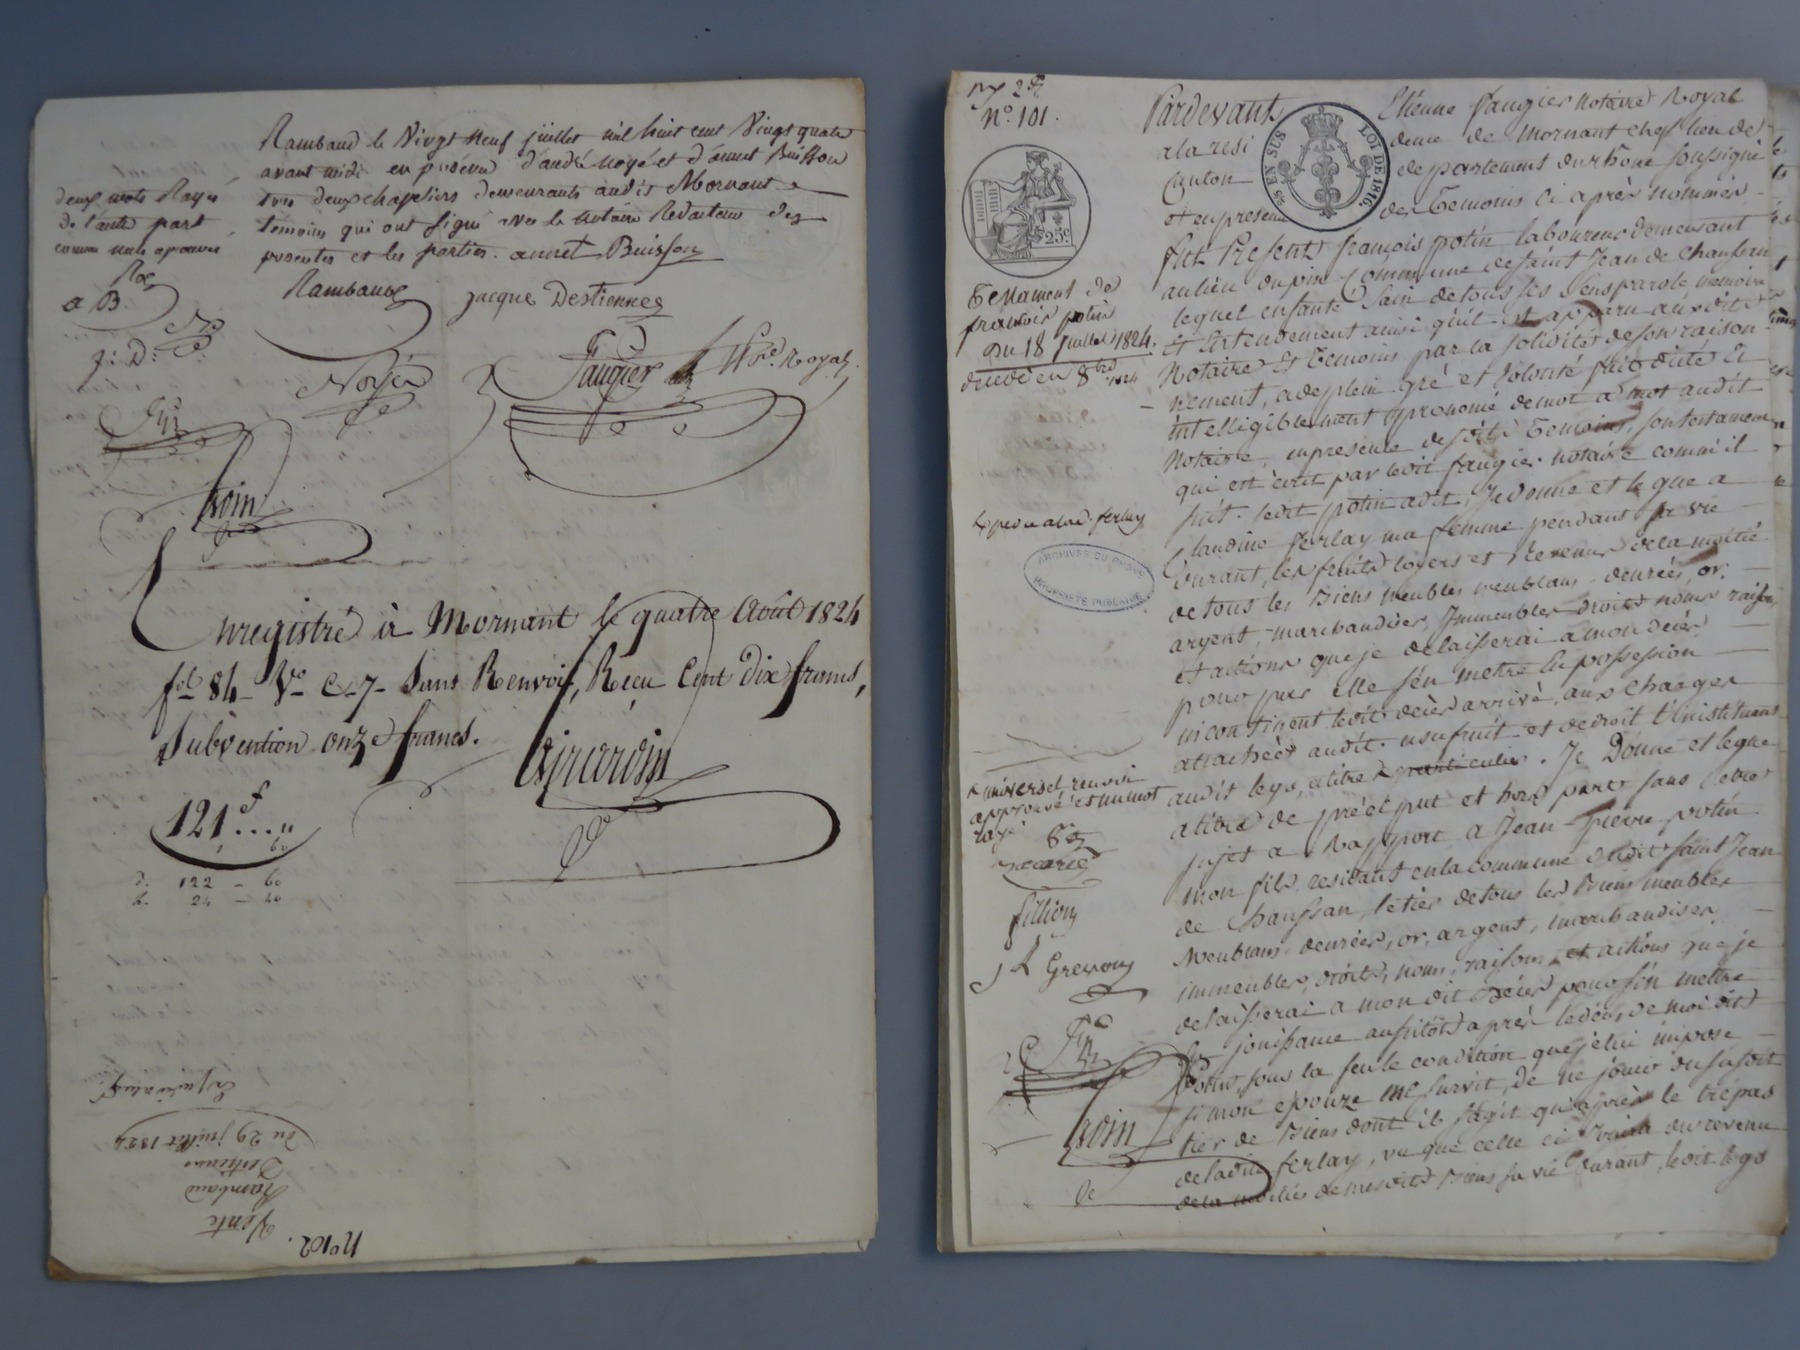 Rambaud le Vingt Neuf juillet mil huit cent Vingt quatre
avant midi en présence d'andré noyé et d'annet Buisson
tous deux chapeliers demeurants audit Mornant
témoins qui ont signé avec le Notaire Redacteur des
presentes et les parties. annet Buisson
deux mots Rayés
de l'autre part
comme nuls approuvés
a B.
Rambaud
jacque Destiennes
j: D:
Noyé
Faugier Nre. Royal.
Enregistré à Mornant le quatre Août 1824
fol. 84 Vo C. 7. Sans Renvoi, Reçu Cent dix francs,
Subvention onze francs.
Girardin
121 f
d. 122 - 60
b. 24 - 40
du 29 juillet 1824
Destienne
Rambaud
Vente
No 102.
No. 101.
25c
EN SUS LOI DE 1816.
Testament de
françois potin
Du 18 juillet 1824.
Pardevant Etienne faugier notaire Royal
a la resi dence de Mornant chef lieu de
Canton departement du rhône soussigné
et en presence des Temoins ci après nommés
fut Present françois potin laboureur demeurant
au lieu du pin Commune de saint Jean de Chaussan
lequel enfanté sain de tous ses sens parole memoire
et Entendement ainsi qu'il est apparu auxdits
Notaire et Temoins par la solidité de son raison
nement, a de plein gré et volonté fait dicté et
intelligiblement prononcé de mot a mot audit
Notaire, en presence desdits Temoins, son testament
qui est écrit par ledit faugier notaire comme il
suit. ledit potin a dit, Je donne et legue a
Claudine ferlay ma femme pendant sa vie
Durant, les fruits loyers et Revenus de la moitié
de tous les Biens meubles meublans, denrées, or,
argent, marchandises, Immeubles droits noms raisons
et actions que je delaisserai a mon décès
pour par elle s'en mettre en possession
incontinent ledit décès arrivé, aux Charges
attachées audit usufruit et de droit l'instituant
audit legs, a titre particulier. Je Donne et legue
a titre de préciput et hors part sans être
sujet a Rapport a Jean pierre potin
mon fils, residant en la commune dudit saint Jean
de Chaussan, le tiers de tous les Biens meubles
Meublans, denrées, or, argent, marchandises,
immeubles, droits, noms, raisons, et actions que je
delaisserai a mon dit décès pour s'en mettre
en jouissance aussitôt après le décès de moi dit
potin, sous la seule condition que je lui impose
si mon epouze me survit, de ne jouir du susdit
tier de Biens dont il s'agit qu'après le trépas
de ladite ferlay, vu que celle ci jouira du revenu
de la moitié de mesdits Biens sa vie Durant, ledit legs
ARCHIVES DU RHÔNE
PROPRIÉTÉ PUBLIQUE
universel renvoi
approuvé et un mot
rayé
fillion
Grevon